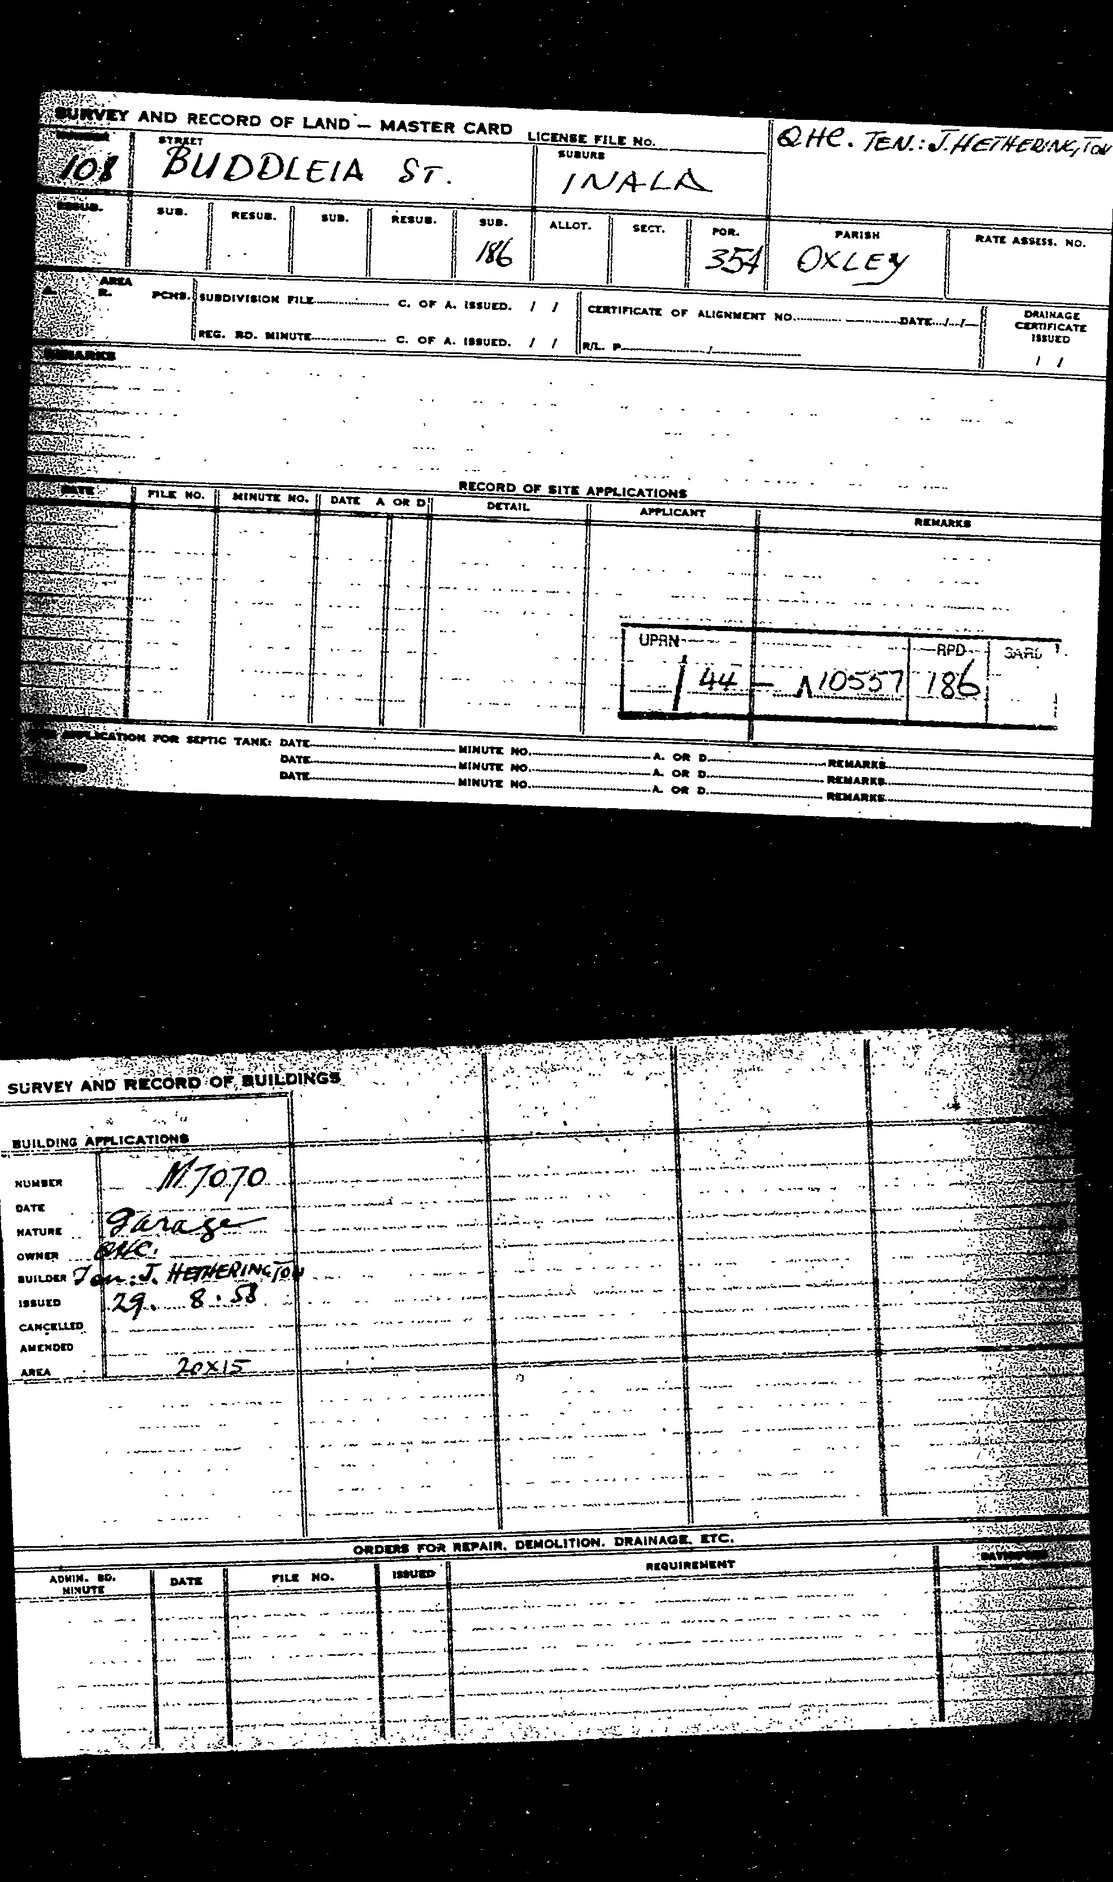 SURVEY AND RECORD OF LAND — MASTER CARD
LICENSE FILE No.
QHC. TEN.: J. HETHERINGTON
108
STREET
BUDDLEIA ST.
SUBURB
INALA
RESUB.
SUB.
RESUB.
SUB.
RESUB.
SUB.
ALLOT.
SECT.
POR.
PARISH
RATE ASSESS. NO.
186
354
OXLEY
AREA
A. R. PCHS.
SUBDIVISION FILE C. OF A. ISSUED. / /
REG. BD. MINUTE C. OF A. ISSUED. / /
CERTIFICATE OF ALIGNMENT NO. DATE / /
R/L. P. /
DRAINAGE
CERTIFICATE
ISSUED
/ /
REMARKS
RECORD OF SITE APPLICATIONS
DATE
FILE NO.
MINUTE NO.
DATE A OR D
DETAIL
APPLICANT
REMARKS
UPRN
RPD
CARD
144 — N10557 186
APPLICATION FOR SEPTIC TANK: DATE MINUTE NO. A. OR D. REMARKS
DATE MINUTE NO. A. OR D. REMARKS
DATE MINUTE NO. A. OR D. REMARKS
SURVEY AND RECORD OF BUILDINGS
BUILDING APPLICATIONS
NUMBER M7070
DATE
NATURE Garage
OWNER QHC.
BUILDER Ten: J. HETHERINGTON
ISSUED 29. 8. 58
CANCELLED
AMENDED
AREA 20x15
ORDERS FOR REPAIR, DEMOLITION, DRAINAGE, ETC.
ADMIN. BD.
MINUTE
DATE
FILE NO.
ISSUED
REQUIREMENT